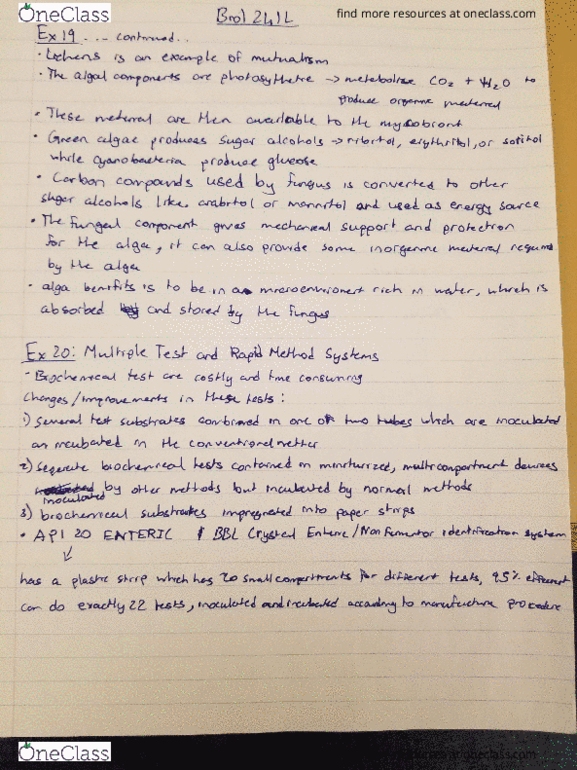 OneClass
find more resources at oneclass.com
Biol 241L
Ex 19 ... continued..
• Lichens is an example of mutualism
• The algal components are photosythetic → metabolize CO2 + H2O to
produce organic material
• These material are then available to the mycobiont
• Green algae produces sugar alcohols → ribitol, erythritol, or sorbitol
while cyanobacteria produce glucose
• Carbon compounds used by fungus is converted to other
sugar alcohols like arabitol or mannitol and used as energy source
• The fungal component gives mechanical support and protection
for the alga, it can also provide some inorganic material required
by the alga
• alga benifits is to be in a microenvironment rich in water, which is
absorbed and stored by the fungus
Ex 20: Multiple Test and Rapid Method Systems
• Biochemical test are costly and time consuming
Changes/improvements in these tests:
1) Several test substrates combined in one or two tubes which are inoculated
an incubated in the conventional
2) Seperate biochemical tests contained in miniturized, multicompartment devices
inoculated by other methods but incubated by normal methods
3) biochemical substrates impregnated into paper strips
• API 20 ENTERIC BBL Crystal Enteric/Nonfermentor identification system
↓
has a plastic strip which has 20 small compartments for different tests, 95% efficient
can do exactly 22 tests, inoculated and incubated according to manufacture procedure
OneClass
find more resources at oneclass.com